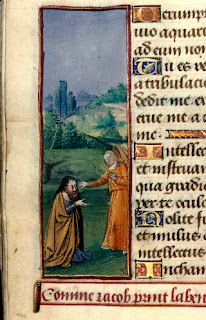 Uerumt
uio aquaru
ad eum non
Tu es re
a tribulacio
dedit me ex
erue me a c
me.
Intellec
et instruam
qua gradie
per te oculo
Nolite fi
et mulus q
intellectus
In cham
Comme iacob print la ben